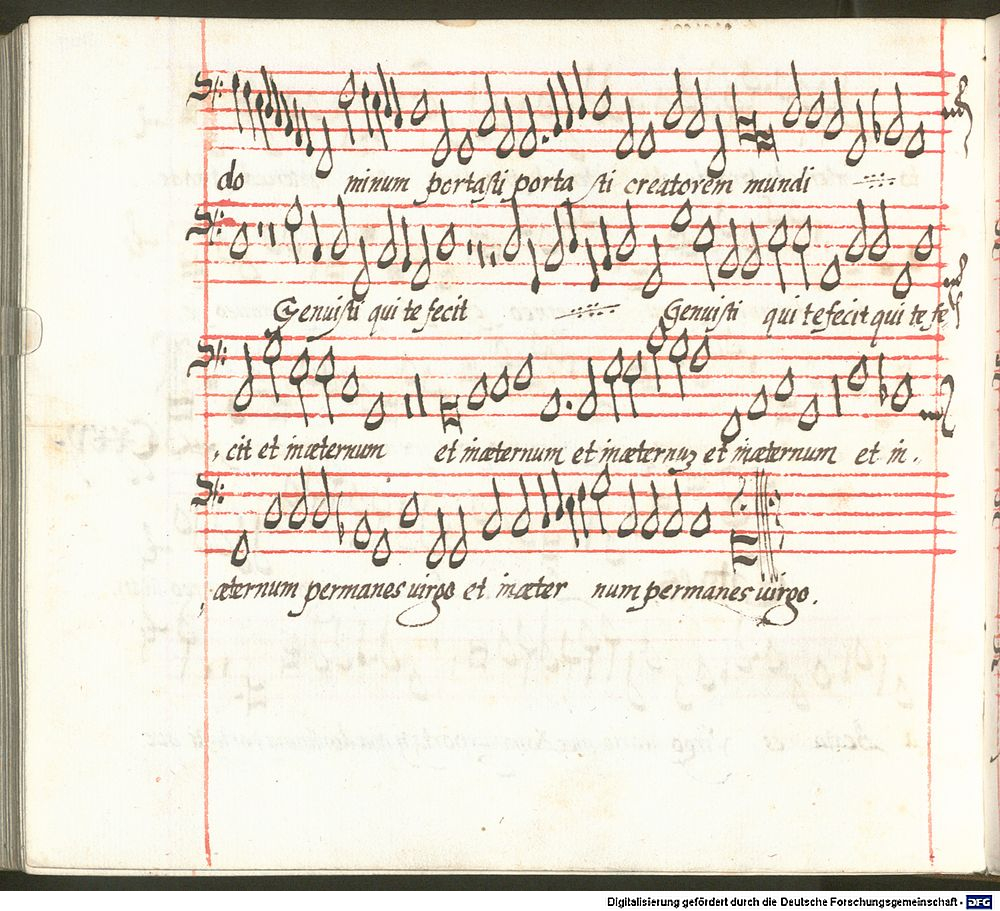 do minum portasti porta sti creatorem mundi
Genuisti qui te fecit Genuisti qui te fecit qui te fe
cit et inæternum et inæternum et inæternuʒ et inæternum et in..
æternum permanes virgo et inæter num permanes virgo.
Digitalisierung gefördert durch die Deutsche Forschungsgemeinschaft - DFG